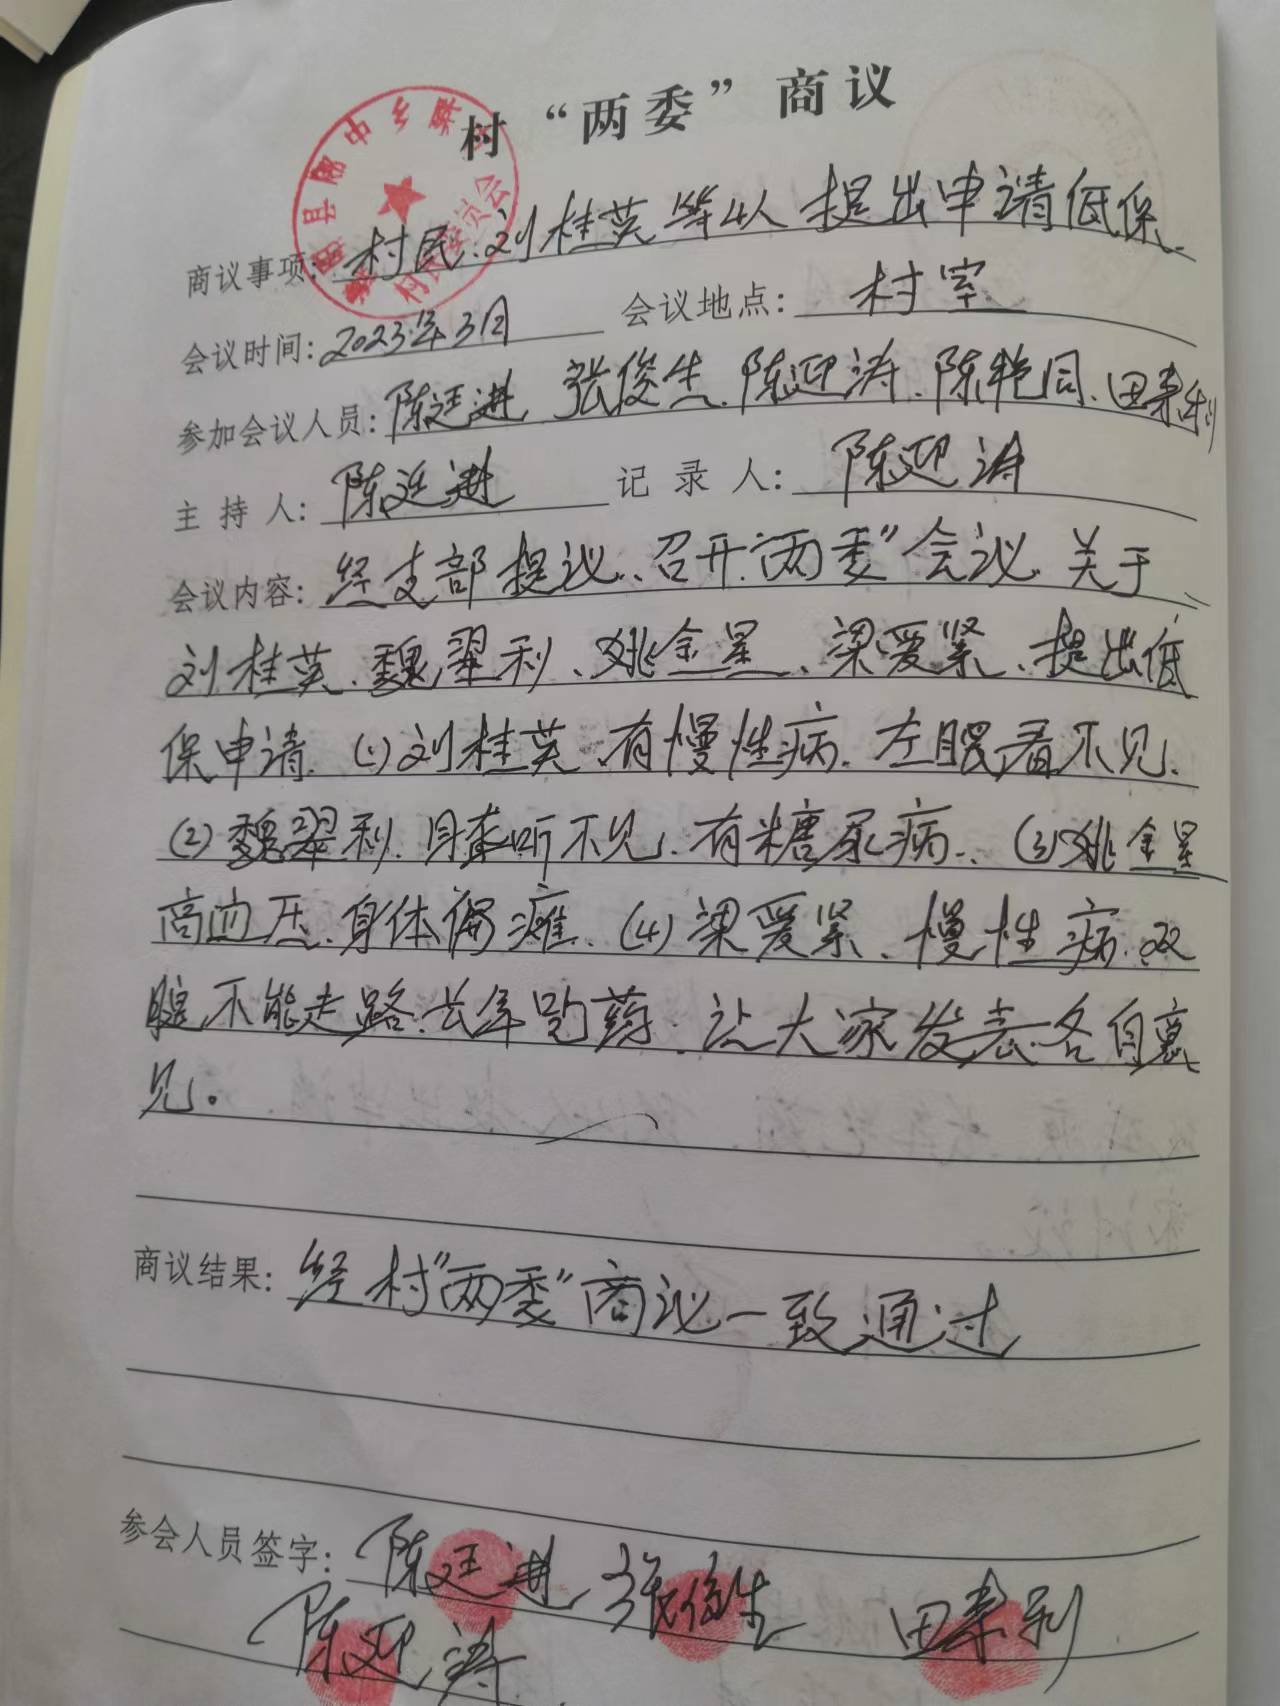 村“两委”商议
商议事项：村民.刘桂英等4人提出申请低保.
会议时间：2023.年3月 会议地点：村室
参加会议人员：陈廷进 张俊生.陈迎涛.陈艳同.田素利
主持人：陈廷进 记录人：陈迎涛
会议内容：经支部提议.召开“两委”会议.关于
刘桂英.魏翠利、姚金星、梁爱紧、提出低
保申请.(1)刘桂英.有慢性病.左眼看不见.
(2)魏翠利.耳聋听不见.有糖尿病.(3)姚金星
高血压.身体偏瘫.(4)梁爱紧、慢性病.双
腿不能走路.长年吃药.让大家发表各自意
见。
商议结果：经村“两委”商议一致通过
参会人员签字：陈廷进 张俊生 田素利
陈迎涛
村民委员会